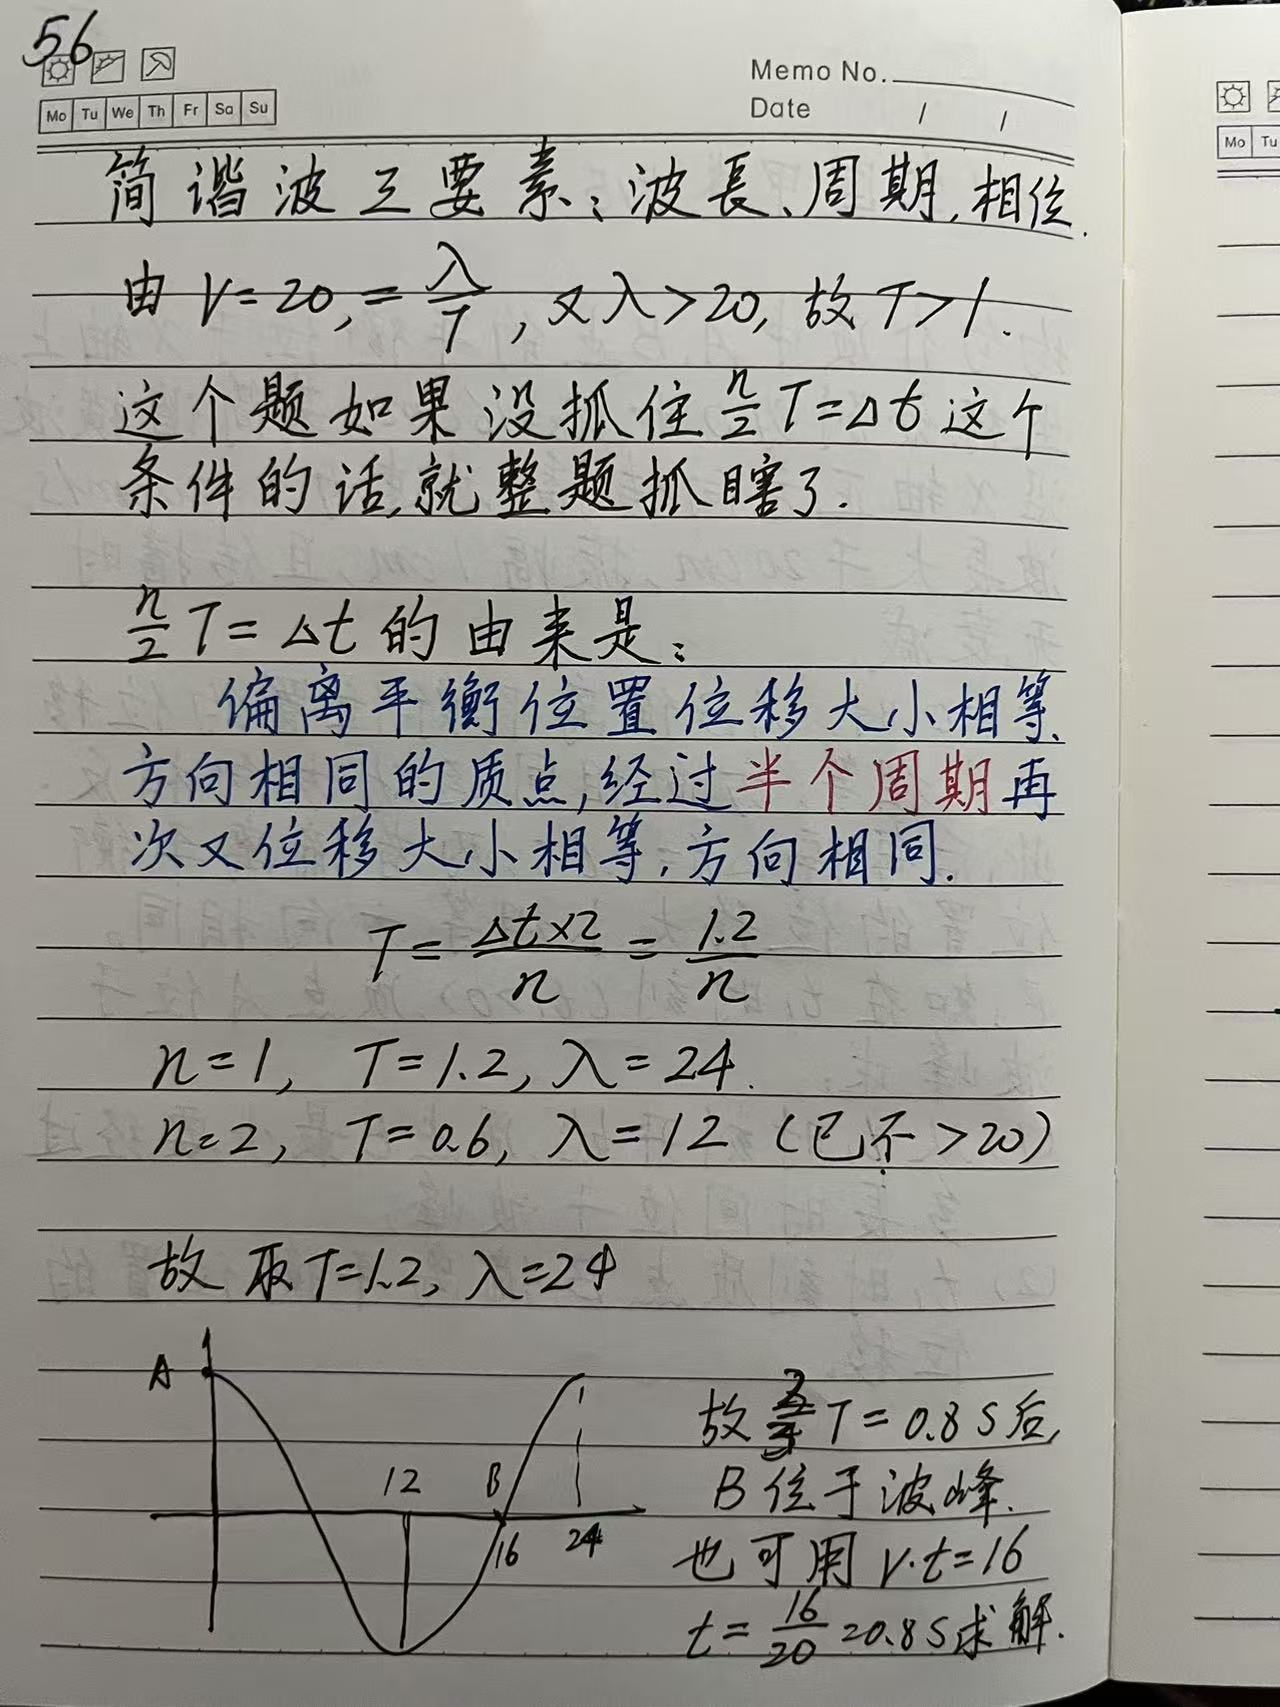 56
Memo No.
Mo Tu We Th Fr Sa Su
Date / /
Mo Tu
简谐波三要素:波長、周期,相位.
由 V=20,=λ/T,又λ>20,故T>1.
这个题如果没抓住n/2 T=Δt这个
条件的话,就整题抓瞎了.
n/2 T=Δt的由来是:
偏离平衡位置位移大小相等、
方向相同的质点,经过半个周期再
次又位移大小相等,方向相同.
T=Δt×2/n=1.2/n
n=1, T=1.2, λ=24.
n=2, T=0.6, λ=12 (已不>20)
故取T=1.2, λ=24
A
12
B
16
24
故2/3 T=0.8S后,
B位于波峰.
也可用 v·t=16
t=16/20=0.8S求解.